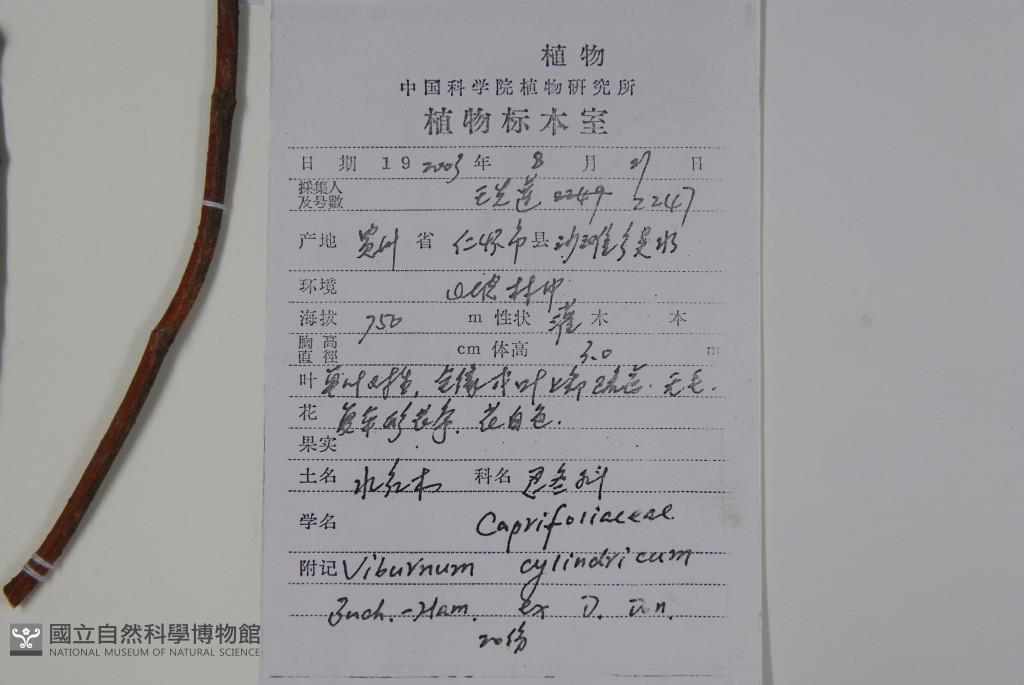 植物
中国科学院植物研究所
植物标本室
日 期 19 2003 年 8 月 27 日
採集人 及号數 2249 2247
产地 贵州 省 仁怀市 县
环境 林中
海拔 750 m 性状 灌 木 本
胸高 直徑 cm 体高 3.0 m
叶 单叶对生, 全缘或叶上部疏齿. 无毛.
花 花白色.
果实
土名 水红木 科名 忍冬科
学名 Caprifoliaceae
附记 Viburnum cylindricum
Buch.-Ham. ex D. Don.
20份
國立自然科學博物館
NATIONAL MUSEUM OF NATURAL SCIENCE